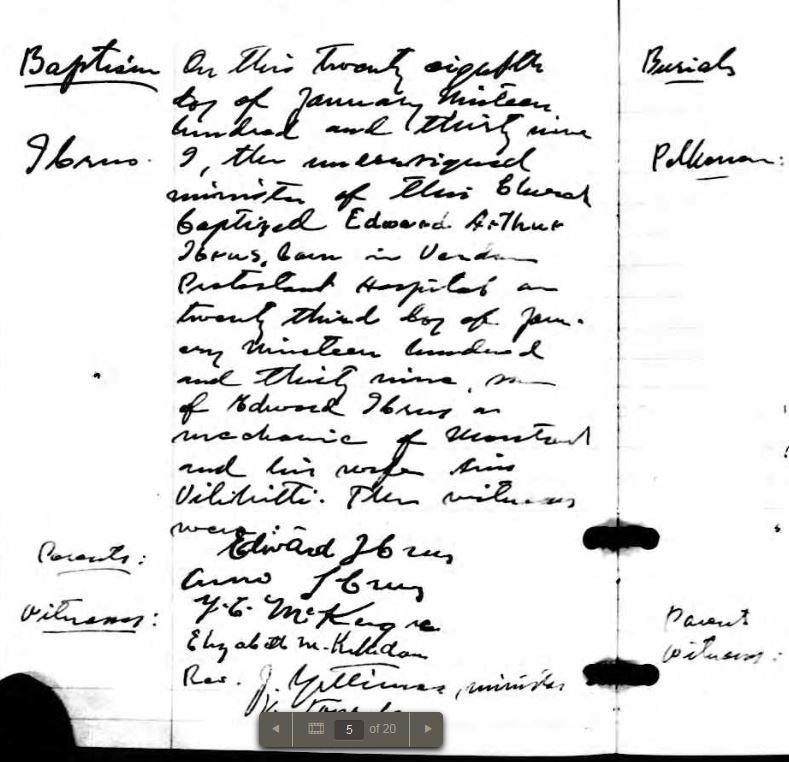 Baptism
On this twenty eighth
day of January Nineteen
hundred and thirty nine
Ibrus.
I, the undersigned
minister of this Church
baptized Edward Arthur
Ibrus, born in Verdun
Protestant Hospital on
twenty third day of Jan-
ary Nineteen hundred
and thirty nine, son
of Edward Ibrus a
mechanic of Montreal
and his wife
The witnesses
were:
Parents:
Edward Ibrus
Ibrus
Witnesses:
Elizabeth
Rev. J. minister
Burials
Parent
Witness:
5 of 20